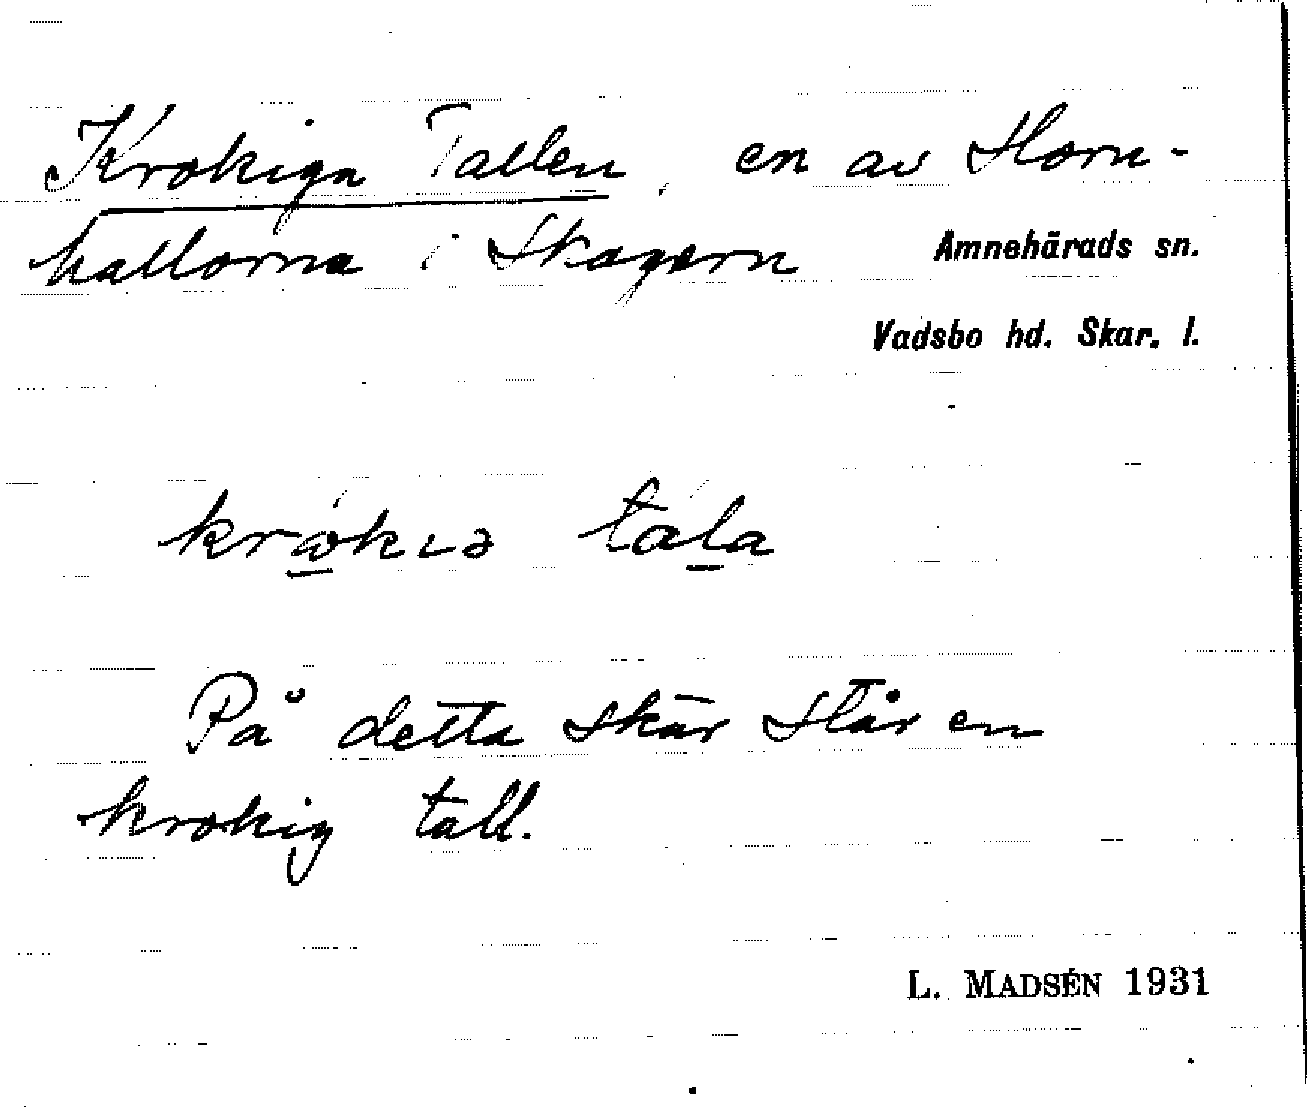 Krokiga Tallen, en av Horn-
hallorna i Skagern
Amnehärads sn.
Vadsbo hd. Skar. l.
krokıə tala
På detta skär står en
krokig tall.
L. MADSÉN 1931